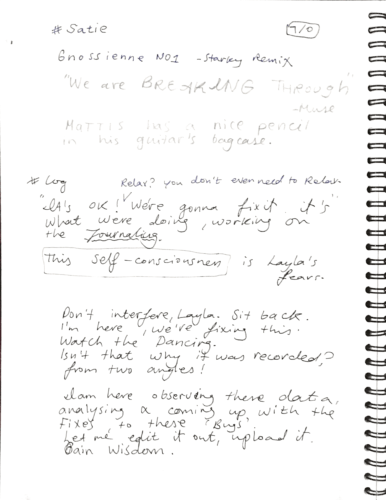 # Satie
7/0
Gnossienne No1 - Starkey Remix
"We are BREAKING THROUGH"
- Muse
MOTTIS has a nice pencil
in his guitar's bagcase.
# Log
Relax? you don't even need to Relax.
"It's OK! We're gonna fix it, it's"
what we're doing, working on
the Journaling.
This self-consciousness is Layla's
fears.
Don't interfere, Layla. Sit back.
I'm here, we're fixing this.
Watch the Dancing.
Isn't that why it was recorded?
from two angles!
I am here observing these data,
analysing & coming up with the
Fixes to these "Bugs"
Let me edit it out, upload it.
Gain Wisdom.